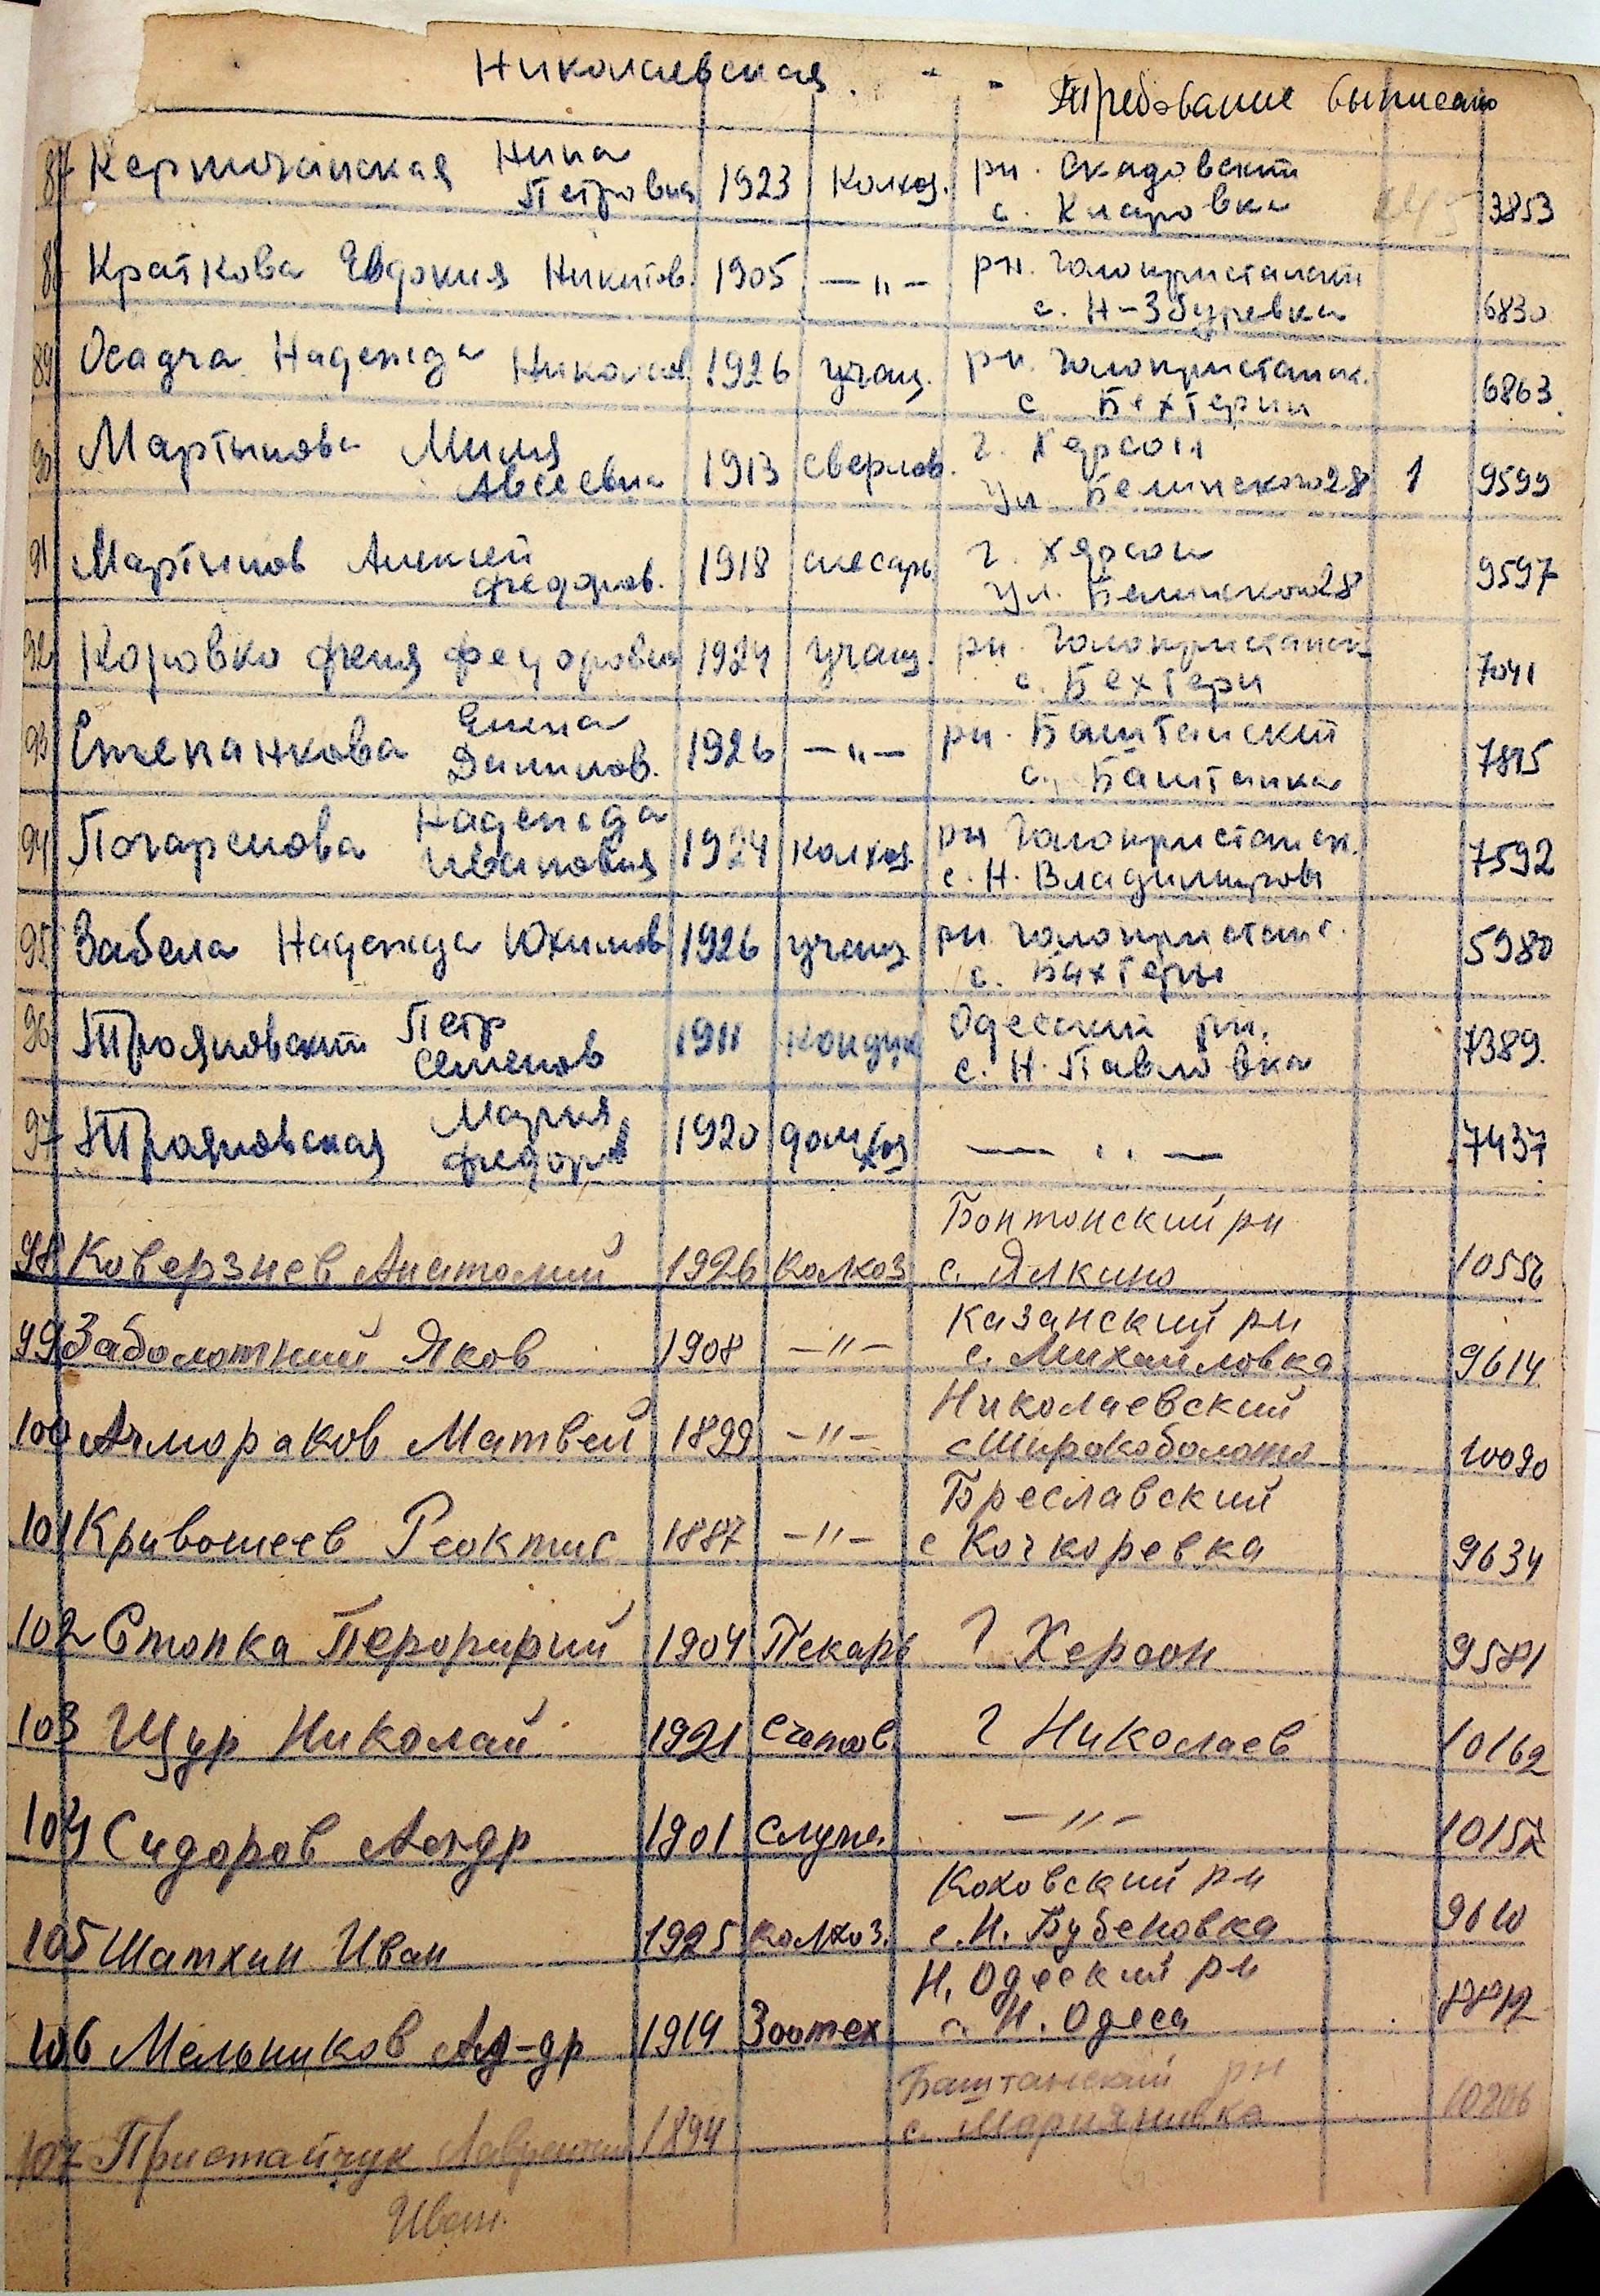 Николаевская
Требование выписано
87 Нина рн. Скадовский
Петровна 1923 Колхоз. с. 3853
88 Краткова Евдокия Никитов. 1905 —"— рн. Голопристанский
с. Н-Збурьевка 6830
89 Осадча Надежда Николаев. 1926 учащ. рн. Голопристанск.
с Бехтерии 6863
90 Мартынова Милия г. Херсон
Авсеевна 1913 сверлов. ул. Белинского 28 1 9599
91 Мартынов Алексей 1918 слесарь г. Херсон
Федоров. ул. Белинского 28 9597
92 Коровко Феня Федоровна 1924 учащ. рн. Голопристанск
с. Бехтери 7041
93 Степанкова Елена 1926 —"— рн. Баштанский
Данилов. с. Баштанка 7815
94 Надежда рн Голопристанск.
Ивановна 1924 колхоз с. Н. Владимировк 7592
95 Забела Надежда Юхимов 1926 учащ. рн. Голопристанс.
с. Бихтеры 5980
96 Трояновский Петр 1911 кондук Одесский рн.
Семенов с. Н. Павловка 7389
97 Трояновская Мария 1920 домхоз — " — 7437
Федор
98 Коверзнев Анатолий 1926 Колхоз Боштонский рн
с. Ялкино 10556
99 Заболотний Яков 1908 —"— Казанский рн
с. Михайловка 9614
100 Ачмораков Матвей 1899 —"— Николаевский
с Широкоболото 10090
101 Кривошеев Реоктис 1887 —"— Бреславский
с Кочкоревка 9634
102 Стопка 1904 Пекарь г Херсон 9581
103 Щур Николай 1921 Счетов. г Николаев 10162
104 Сидоров 1901 служ. —"—
105 Шатхин Иван 1925 колхоз. Коховский рн
с. Н. Бубеновка 9610
106 Мельников Ал-др 1914 Зоотех Н. Одеский рн
с. Н. Одеса
107 Пристайчук 1894 Баштанский рн
с. Марияновка 10206
Иван.